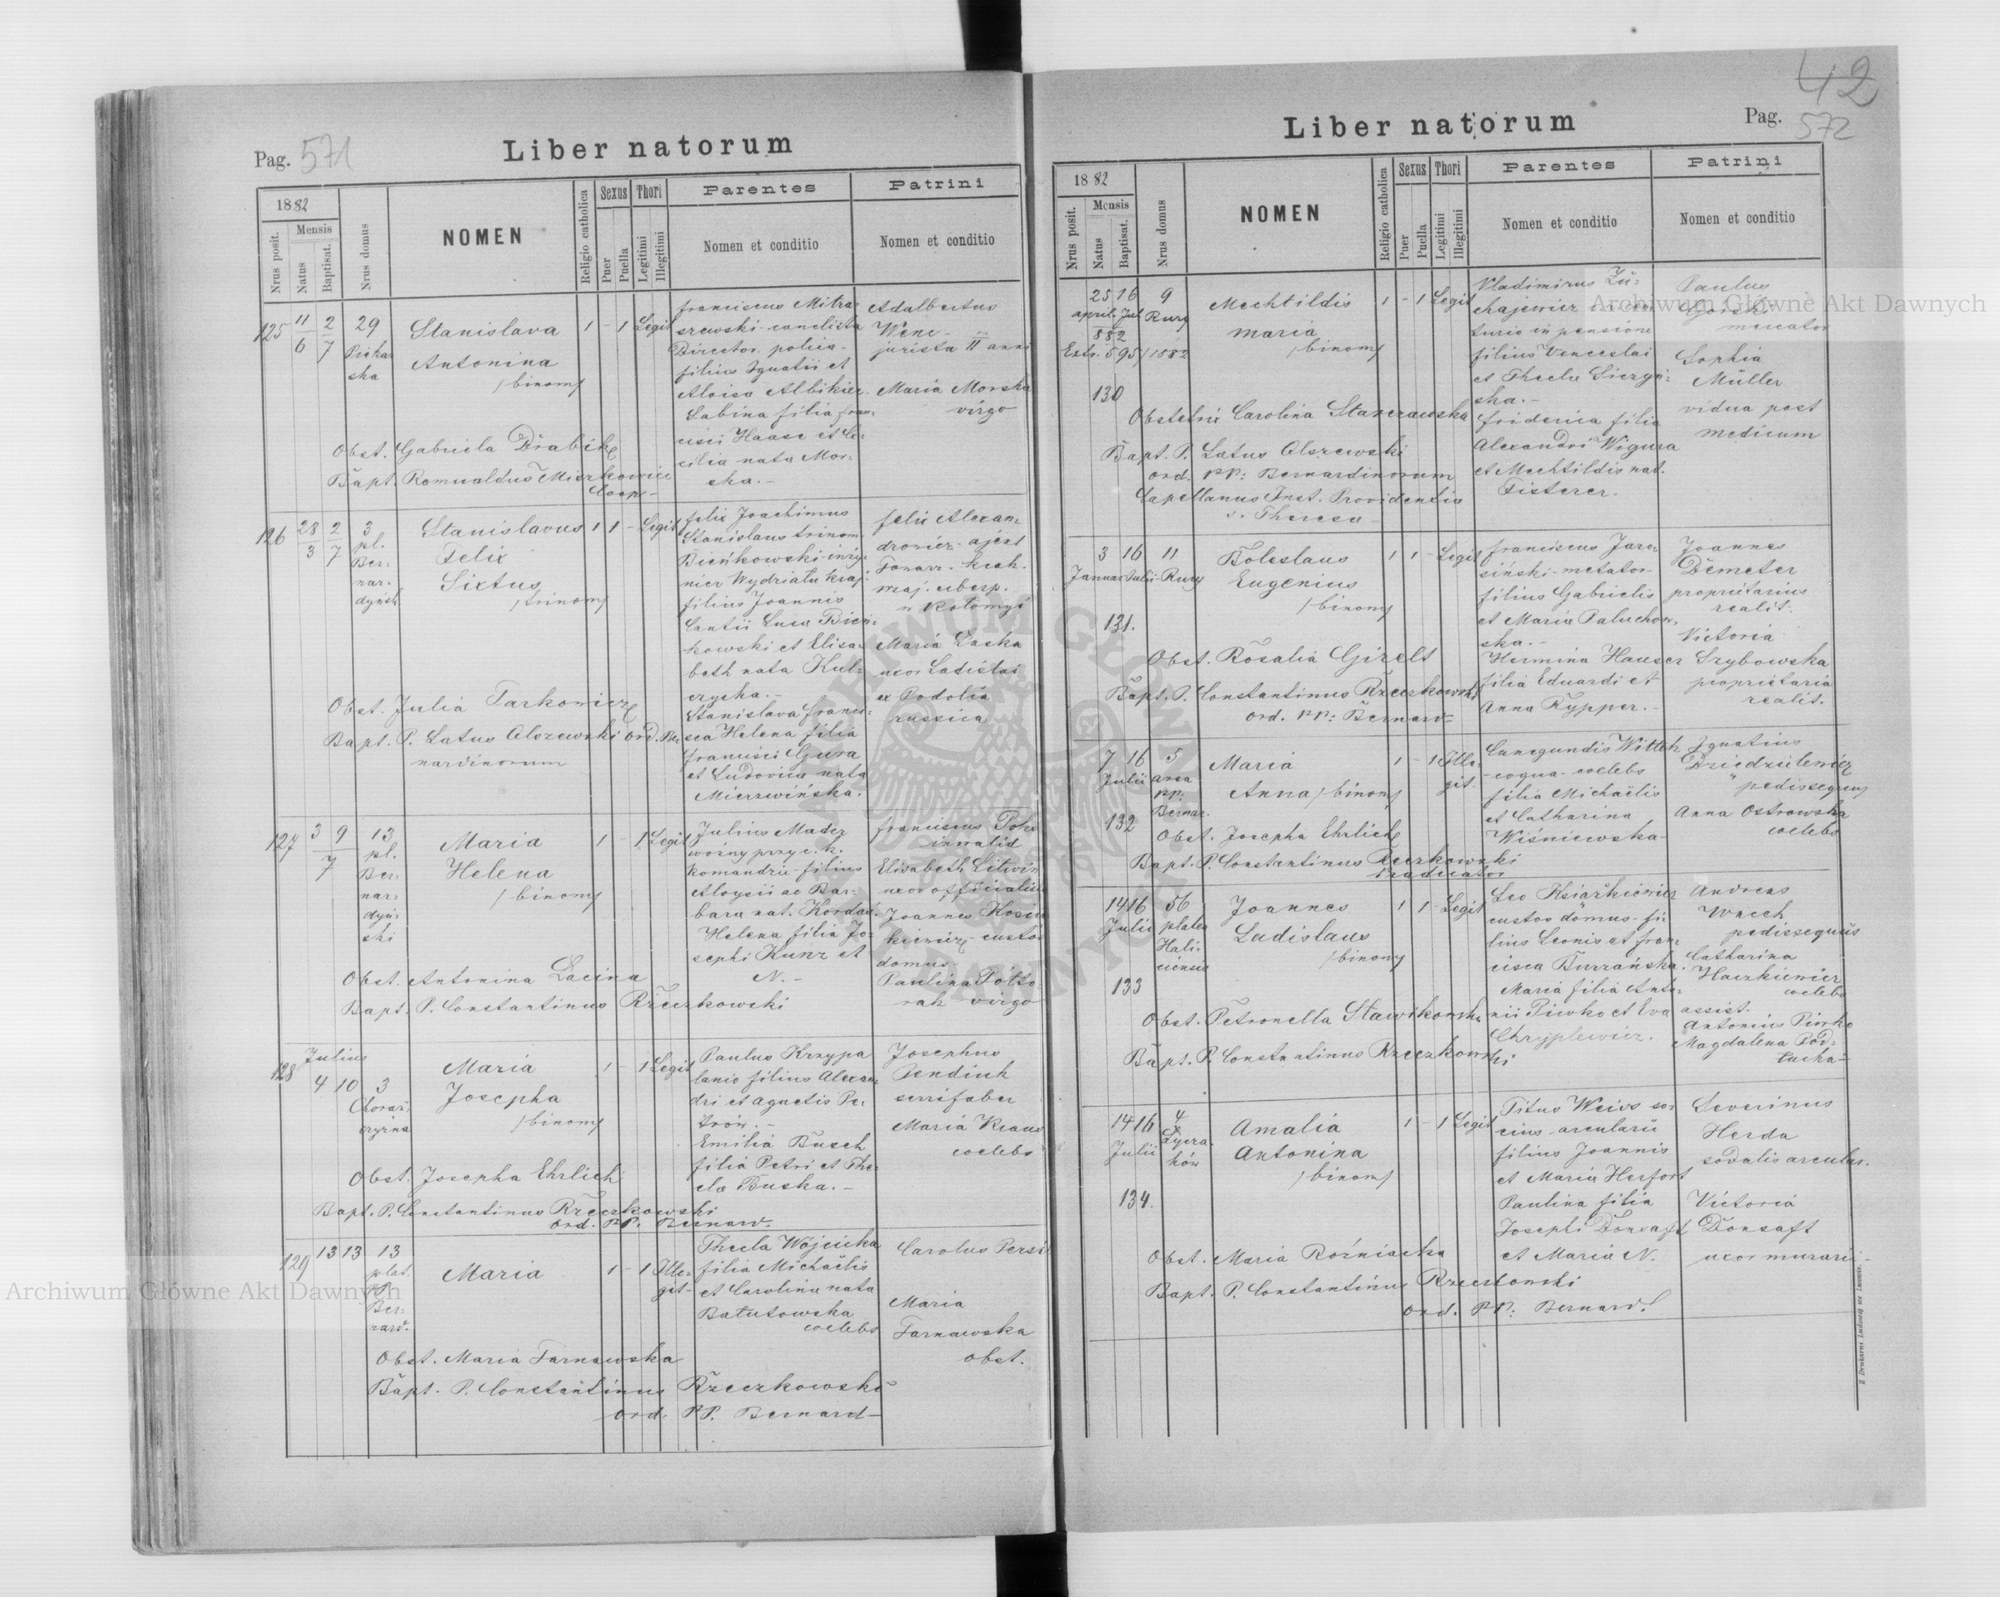 Pag. 571
Liber natorum
1882
Nrus posit.
Mensis
Natus
Baptisat.
Nrus domus
NOMEN
Religio catholica
Sexus
Puer
Puella
Thori
Legitimi
Illegitimi
Parentes
Nomen et conditio
Patrini
Nomen et conditio
125 11/6 2/7 29
Stanislava
Antonina
/binom/
1 - 1 Legit
Franciscus Mitra-
szewski cancelista
Director. policia
filius Ignatii et
Aloisa Albikier
Sabina filia Fran-
cisci Haase et Ce-
cilia nata Mor-
ska.-
Adalbertus
jurista II anni
Maria Morska
virgo
Obst. Gabriela Drabik
Bapt. Romualdus
Coop-
126 28/3 2/7 3
pl.
Ber-
nar-
dyńsk
Stanislavus
Felix
Sixtus
/trinom/
1 1 - Legit
Felix Joachimus
Stanislaus trinom
Bieńkowski
filius Joannis
Cantii Luca Bień-
kowski et Elisa-
beth nata
Stanislava Francis-
sca Helena filia
Francisci Gura
et Ludovica nata
Mierzwińska.
Felix Alexan-
drowicz - ajent
w Kołomyi
Maria Łaska
uxor Ladislai
ex Podolia
russica
Obst. Julia Tarkowicz
Bapt. P. Latus Olszewski Ord. Ber
nardinorum
127 3 9
7
13
pl.
Ber-
nar-
dyń-
ski
Maria
Helena
/binom/
1 - 1 Legit
Julius Madey
woźny przy c. k.
komandzie filius
Aloysii ac Bar-
bara nat.
Helena filia Jo-
sephi Kunz et
N.-
Franciscus
invalid
Elisabeth Litwin
uxor officialis
Joannes
custos
domus
Paulina
virgo
Obst. Antonina Lacina
Bapt. P. Constantinus Rzeczkowski
128 Julius
4 10 3
Maria
Josepha
/binom/
1 - 1 Legit
Paulus Krzypa
lanio filius Alexan-
dri et Agnetis Pe-
trów.-
Emilia Busch
filia Petri et The-
cla Buska.-
Josephus
serrifaber
Maria Kraus
coelebs
Obst. Josepha Ehrlich
Bapt. P. Constantinus Rzeczkowski
ord. PP. Bernard.
129 13 13 13
plat.
PP.
Ber-
nard.
Maria
1 - 1 Ille-
git-
Thecla Wójcicka
filia Michaëlis
et Carolina nata
Batutowska
coelebs
Carolus
Maria
Tarnawska
obst.
Obst. Maria Tarnawska
Bapt. P. Constantinus Rzeczkowski
ord. PP. Bernard-
42
Liber natorum
Pag. 572
1882
Nrus posit.
Mensis
Natus
Baptisat.
Nrus domus
NOMEN
Religio catholica
Sexus
Puer
Puella
Thori
Legitimi
Illegitimi
Parentes
Nomen et conditio
Patrini
Nomen et conditio
25 16 9
april. Jul Rury
882
Exh. 595/1882
130
Mechtildis
Maria
/binom/
1 - 1 Legit
Vladimirus
in pensione
filius Venceslai
et Thecla
ska.-
Friderica filia
Alexandri Wigura
et Mechtildis nat.
Fisterer.
Paulus
Górski
mercator
Sophia
Müller
vidua post
medicum
Obstetrix Carolina
Bapt. P. Latus Olszewski
ord. PP. Bernardinorum
Capellanus Inst. Providentia
s. Theresa-
3 16 11
Januar Julii Rury
131.
Boleslaus
Eugenius
/binom/
1 1 - Legit
Franciscus Jaro-
siński - metator
filius Gabrielis
et Maria Paluchow-
ska.-
Hermina Hauser
filia Eduardi et
Anna Kypper.-
Joannes
Demeter
proprietarius
realit.
Victoria
Szybowska
proprietaria
realit.
Obst. Rosalia Girelt
Bapt. P. Constantinus Rzeczkowski
ord. PP. Bernard-
7 16 5
Julii area
PP.
Bernar.
132
Maria
Anna /binom/
1 - 1 Ille-
git-
Cunegundis Wittek
- coqua - coelebs
filia Michaëlis
et Catharina
Wiśniewska-
Ignatius
Dziedzielewicz
pedissequus
Anna Ostrowska
coelebs
Obst. Josepha Ehrlich
Bapt. P. Constantinus Rzeczkowski
Praedicator
14 16 56
Julii platea
Hali-
ciensis
133
Joannes
Ladislaus
/binom/
1 1 - Legit
Leo Książkiewicz
custos domus - fi-
lius Leonis et Fran-
cisca Burzańska.
Maria filia Anto-
nii Piwko et Eva
Chryplewicz.
Andreas
Wnech
pedissequus
Catharina
Haczkiewicz
coelebs
assist.
Antonius Piwko
Magdalena Pod-
łucka-
Obst. Petronella Sławikowska
Bapt. P. Constantinus Rzeczkowski
14 16 4
Julii Łycza-
ków
134.
Amalia
Antonina
/binom/
1 - 1 Legit
Titus Weiss so-
cius arcularii
filius Joannis
et Maria Herfort
Paulina filia
Josephi Donsaft
et Maria N.
Severinus
Herda
sodalis arcular.
Victoria
Donsaft
uxor murarii-
Obst. Maria Roźniacka
Bapt. P. Constantinus Rzeczkowski
ord. PP. Bernard.
Z Drukarni Ludowej we Lwowie.
Archiwum Główne Akt Dawnych
Archiwum Główne Akt Dawnych
ARCHIWUM GŁÓWNE AKT DAWNYCH